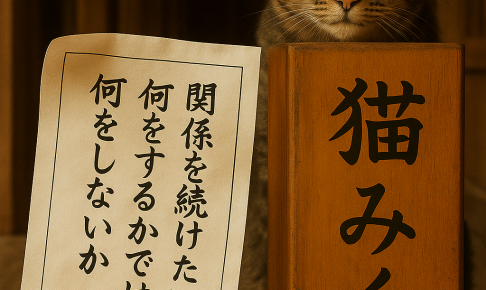 関係を続けた
何をするかでは
何をしないか
猫みく